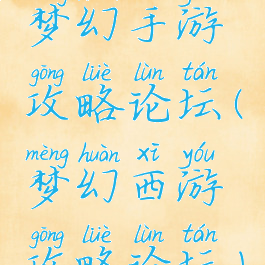 梦幻手游
gōng lüè lùn tán
攻略论坛(
mèng huàn xī yóu
梦幻西游
gōng lüè lùn tán
攻略论坛)